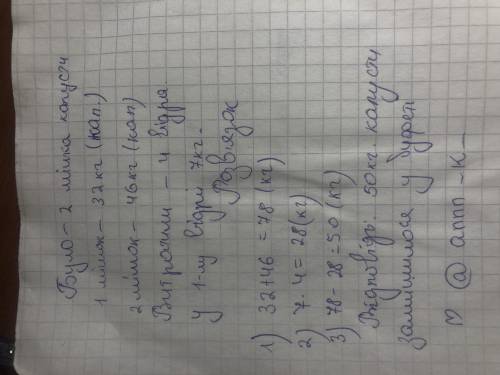 Було - 2 мішка капусти
1 мішок - 32кг (кап.)
2 мішок - 46кг (кап)
Витратили - 4 відра.
У 1-му відрі 7кг -
Розв'язок
1) 32+46 = 78 (кг)
2) 7 · 4 = 28 (кг)
3) 78 - 28 = 50 (кг)
Відповідь: 50кг. капусти
залишилося у буфеті